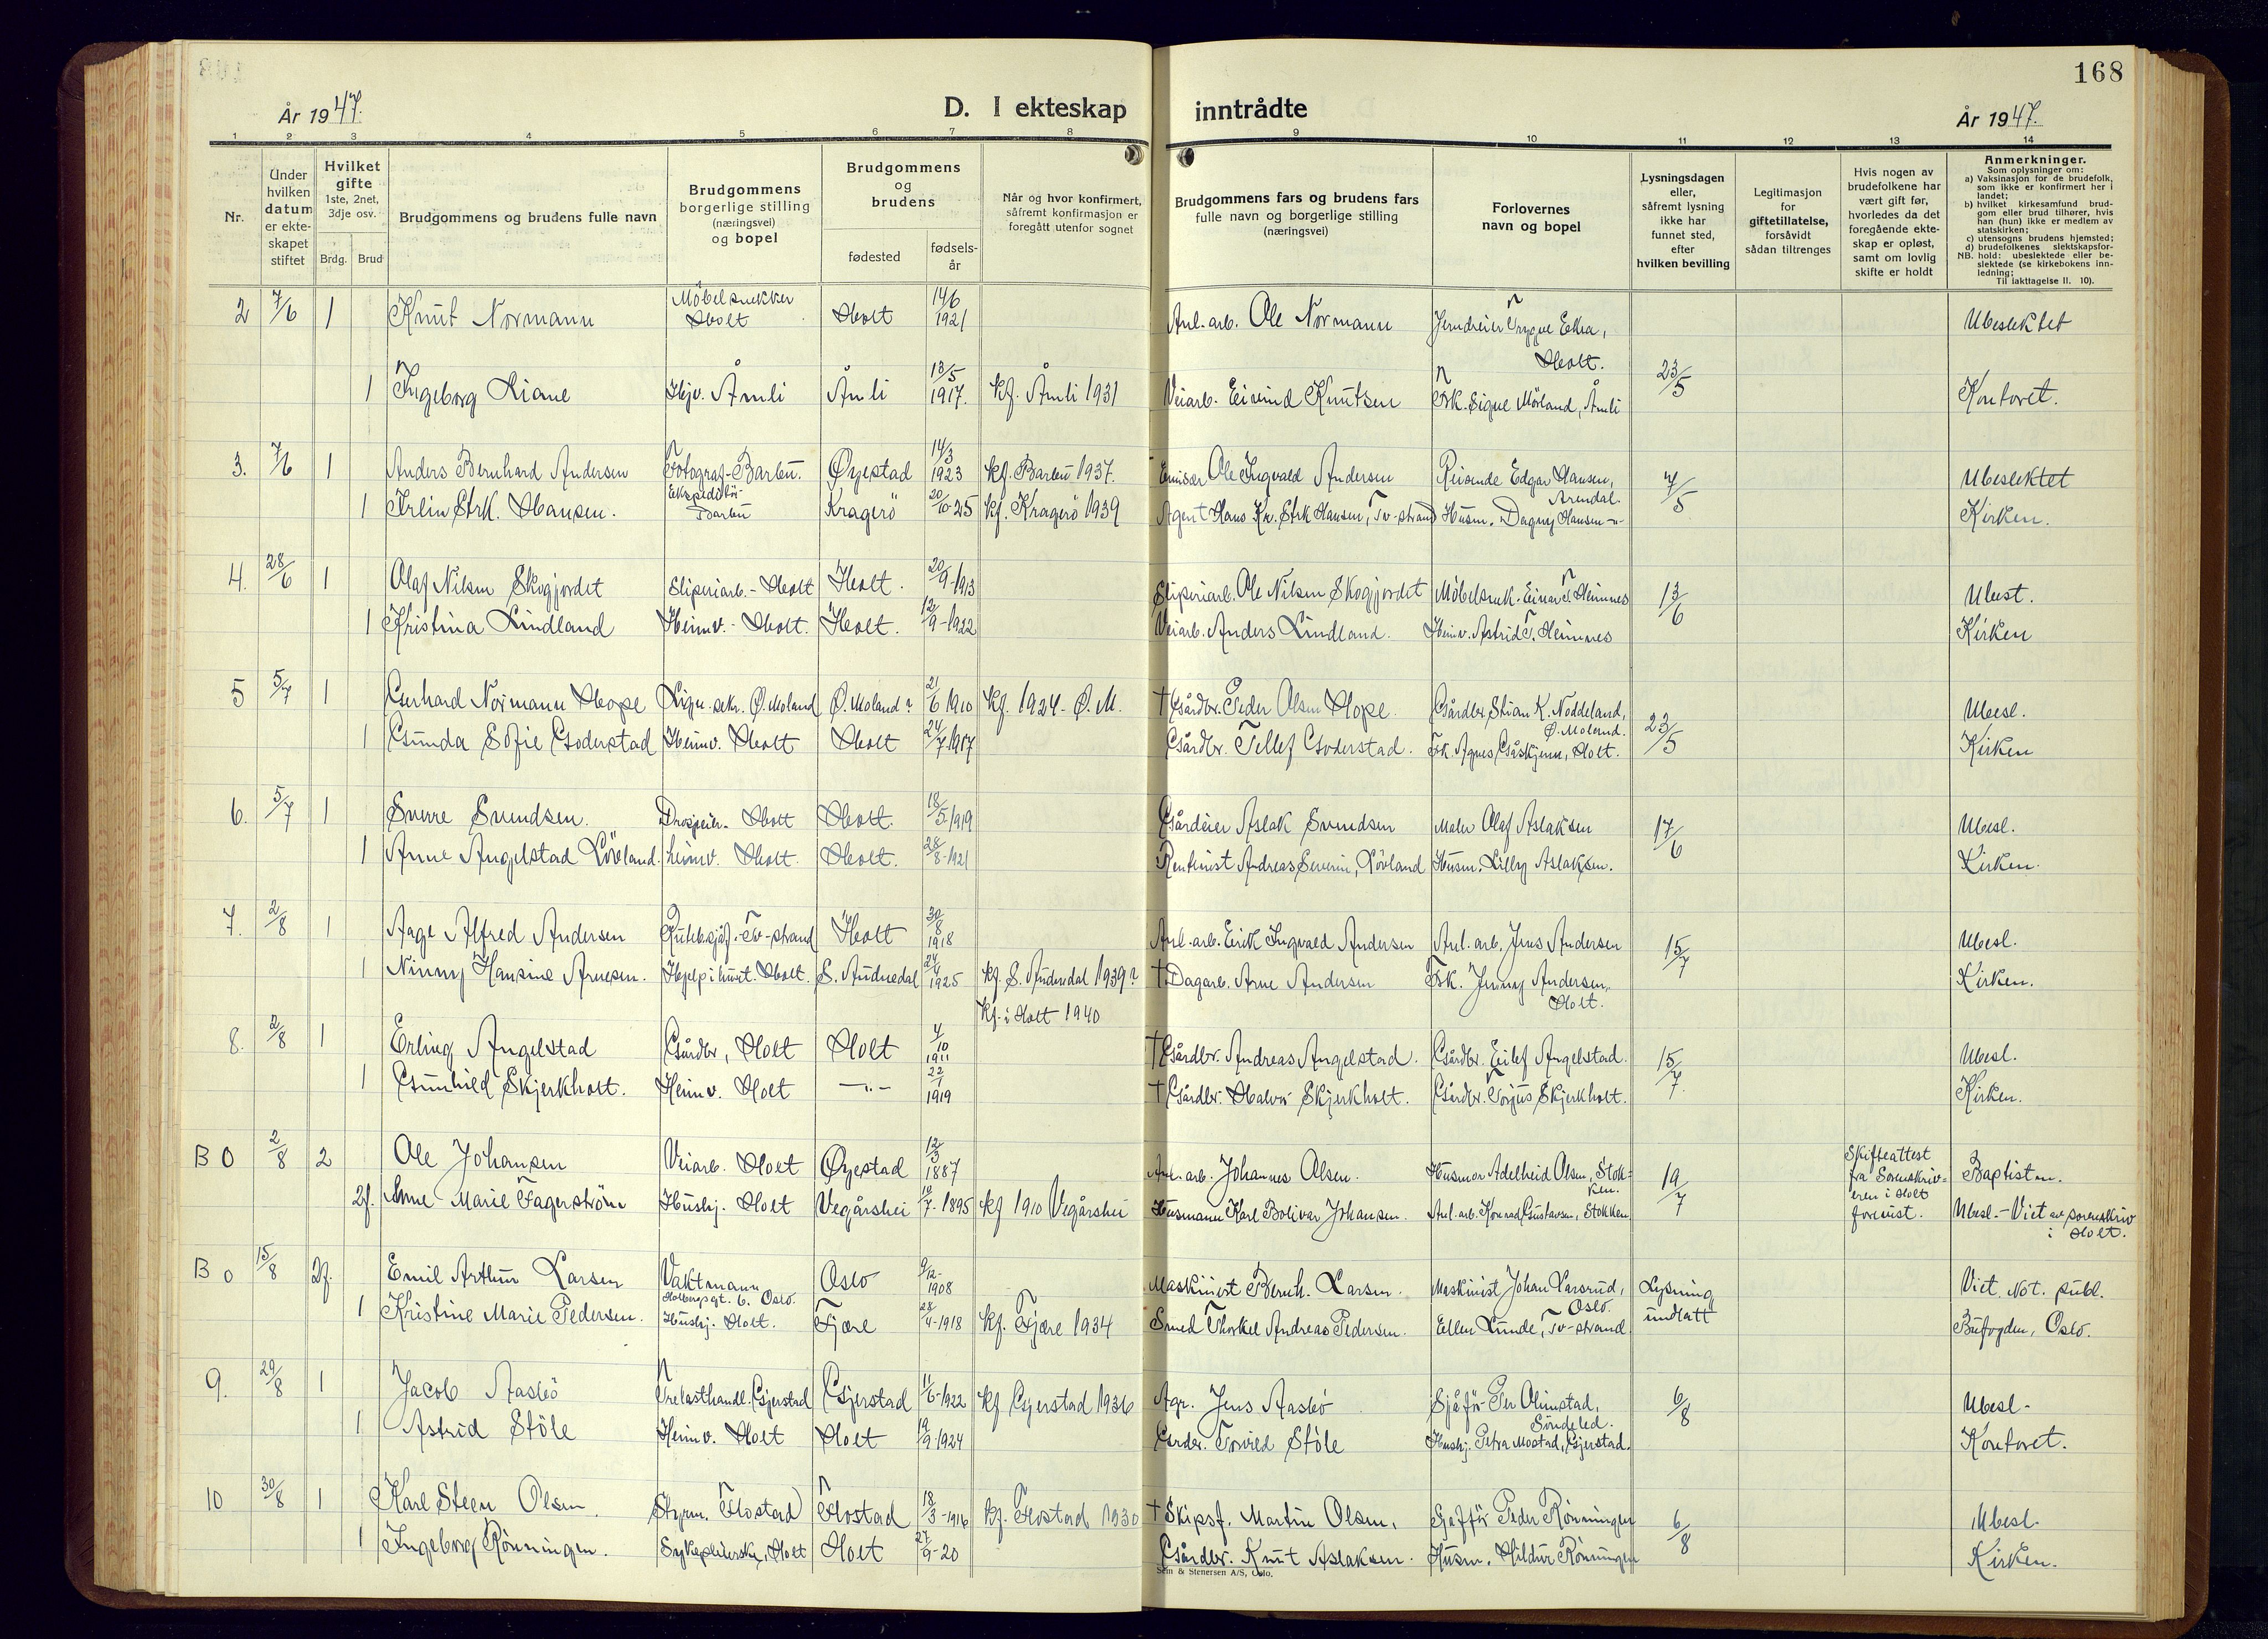 168
År 1947.
D. I ekteskap inntrådte
År 1947.
1 2 3 4 5 6 7 8 9 10 11 12 13 14
Nr.
Under hvilken datum er ekteskapet stiftet
Hvilket gifte 1ste, 2net, 3dje osv.
Brdg. Brud
Brudgommens og brudens fulle navn
Brudgommens borgerlige stilling (næringsvei) og bopel
Brudgommens og brudens
fødested
fødselsår
Når og hvor konfirmert, såfremt konfirmasjon er foregått utenfor sognet
Brudgommens fars og brudens fars fulle navn og borgerlige stilling (næringsvei)
Forlovernes navn og bopel
Lysningsdagen eller, såfremt lysning ikke har funnet sted, efter hvilken bevilling
Legitimasjon for giftetillatelse, forsåvidt sådan tiltrenges
Hvis nogen av brudefolkene har vært gift før, hvorledes da det foregående ekteskap er opløst, samt om lovlig skifte er holdt
Anmerkninger.
Som oplysninger om:
a) Vaksinasjon for de brudefolk, som ikke er konfirmert her i landet;
b) hvilket kirkesamfund brudgom eller brud tilhører, hvis han (hun) ikke er medlem av statskirken;
c) utensogns brudens hjemsted;
d) brudefolkenes slektskapsforhold: ubeslektede eller beslektede (se kirkebokens innledning;
NB.
Til iakttagelse II. 10).
2 7/6 1 Knut Normann Möbelsnekker Holt Holt 14/6 1921 Anl.arb. Ole Normann Jerndreier Trygve Ekra, Holt. 23/5 Ubeslektet
1 Ingeborg Liane Hjv. Åmli Åmli 13/5 1917. Kf. Åmli 1931 Veiarb. Eivind Knutsen Frk. Signe Mörland, Åmli Kontoret.
3. 7/6 1 Anders Bernhard Andersen Fotograf - Barbu. Øyestad 14/3 1923 Kf. Barbu 1937. Emisær Ole Ingvald Andersen Reisende Edgar Hansen, Arendal. 7/5 Ubeslektet
1 Irlin Strk. Hansen. Ekspeditör - Barbu Kragerö 20/10-25 Kf. Kragerö 1939 Agent Hans Kr. Strk Hansen, Tv-strand Husm. Dagny Hansen -"- Kirken.
4. 28/6 1 Olaf Nilsen Skogjordet Sliperiarb. - Holt Holt. 20/9-1913 Sliperiarb. Ole Nilsen Skogjordet Möbelsnek. Einar T. Heimnes 13/6 Ubest.
1 Kristina Lindland Heimv. - Holt. Holt. 12/9-1922 Veiarb. Anders Lindland. Heimv. Astrid T. Heimnes Kirken
5 5/7 1 Gerhard Normann Hope Lign.sekr. Ø. Moland Ø. Moland? 21/6 1910 Kf. 1924 - Ø. M. † Gårdbr. Peder Olsen Hope. Gårdbr. Stian K. Noddeland, Ø. Moland. 23/5 Ubesl.
1 Gunda Sofie Goderstad Heimv. Holt Holt 24/7-1917 Gårdbr. Tellef Goderstad. Frk. Agnes Gåskjenn, Holt. Kirken
6. 5/7 1 Sverre Svendsen. Drosjeeier - Holt Holt. 18/5-1919 Gårdeier Aslak Svendsen Maler Olaf Aslaksen 17/6 Ubesl.
1 Anne Angelstad Lövland. heimv. Holt. Holt. 28/8-1921 Rentenist Andreas Severin, Lövland Husm. Lilly Aslaksen. Kirken.
7. 2/8 1 Aage Alfred Andersen Rutebsjåf. - Tv-strand Holt 30/8 1918 Anl.arb. Eirik Ingvald Andersen Anl.arb. Jens Andersen 15/7 Ubesl.
1 Ninny Hansine Arnesen. Hjelp i huset. Holt. S. Audnedal 24/4 1925 Kf. S. Audnedal 1939? † Dagarb. Arne Andersen Frk. Jenny Andersen, Holt. Kirken.
Kf. i Holt 1940
8. 2/8 1 Erling Angelstad Gårdbr, Holt Holt 4/10 1911 † Gårdbr. Andreas Angelstad. Gårdbr. Eilef Angelstad. 15/7. Ubesl.
1 Gunhild Skjerkholt. Heimv. Holt -"- 22/1 1919 † Gårdbr. Halvor Skjerkholt. Gårdbr. Torjus Skjerkholt. Kirken.
B 0 2/8 2 Ole Johansen Veiarb. Holt Øyestad 12/3 1887 Anl.arb. Johannes Olsen. Husmor Adelheid Olsen, Stokken. 19/7 Skifteattest fra Sorenskriveren i Holt forevist. Baptisten.
2f. Anne Marie Fagerström Hushj. Holt Vegårshei 14/7-1895 Kf 1910 Vegårshei Husmann Karl Bolivar Johansen. Anl.arb. Konrad Gustavsen, Stokken Ubesl. - Viet av sorenskriv i Holt.
B 0 15/8 2f. Emil Arthur Larsen Vaktmann Holbergsgt. 6. Oslo. Oslo 9/12-1908 Maskinist Bernh. Larsen. Maskinist Johan Larsrud, Oslo. Lysning undlatt Viet Not. publ.
1 Kristine Marie Pedersen. Hushj. Holt. Fjære 28/4-1918 Kf. Fjære 1934 Smed Thorkel Andreas Pedersen. Ellen Lunde, Tv-strand Bufogden, Oslo.
9. 29/8 1 Jacob Aasbö Trelasthandl. Gjerstad Gjerstad 11/6-1922 Kf Gjerstad 1936 Agr. Jens Aasbö Sjåför Per Olimstad, Söndeled. 6/8 Ubesl -
1 Astrid Stöle Heimv. Holt Holt 19/9-1924 Gårdbr. Torvild Stöle Hushj. Petra Mostad, Gjerstad. Kontoret.
10 30/8 1 Karl Steen Olsen. Styrm. Flostad Flostad 18/3-1916 Kf. Flostad 1930 † Skipsf. Martin Olsen, Sjåför Peder Rönningen 6/8 Ubesl.
1 Ingeborg Rönningen. Sykepleierske, Holt Holt 27/9-20 Gårdbr. Knut Aslaksen. Husm. Hildur Rönningen Kirken.
Sem & Stenersen A/S, Oslo.